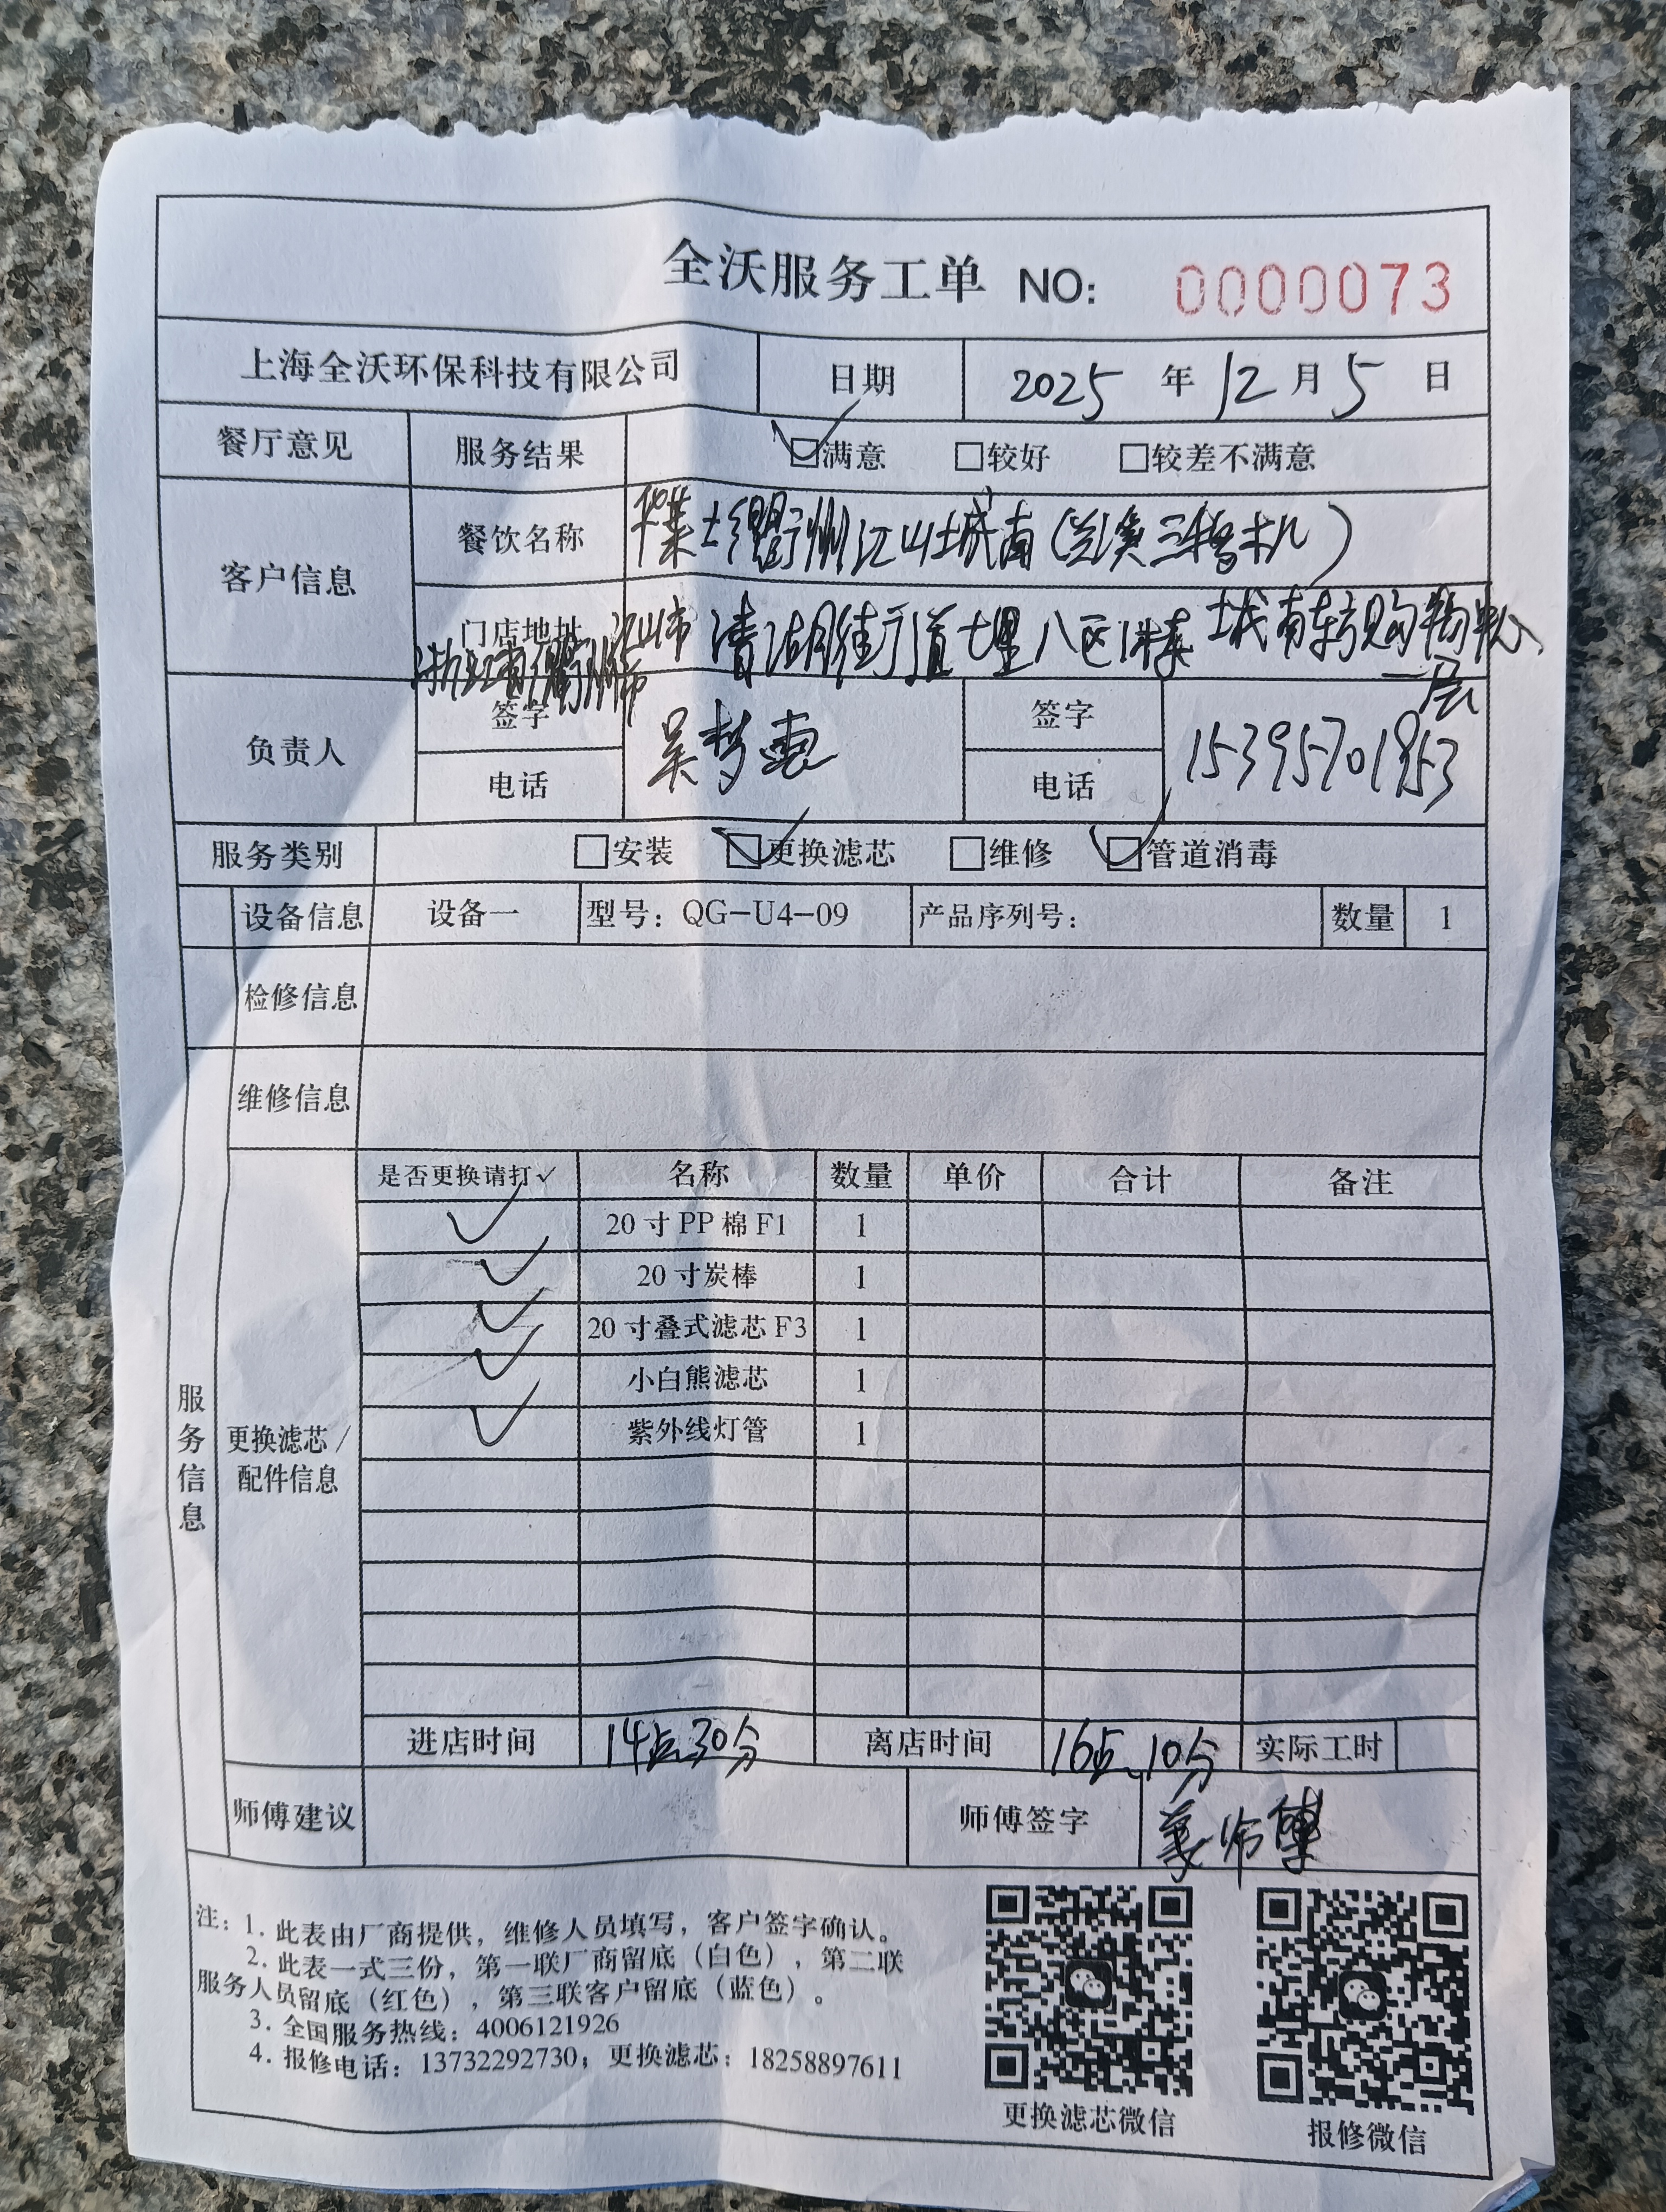 全沃服务工单 NO: 0000073
上海全沃环保科技有限公司 日期 2025 年 12 月 5 日
餐厅意见 服务结果 ☑满意 □较好 □较差不满意
客户信息 餐饮名称 华莱士衢州江山城南(兰溪三替机)
门店地址 浙江省衢州市江山市清湖街道七里八区1株 城南 购物 一层
负责人 签字 吴梦 签字
电话 电话 15395701853
服务类别 □安装 ☑更换滤芯 □维修 ☑管道消毒
设备信息 设备一 型号：QG-U4-09 产品序列号： 数量 1
检修信息
维修信息
服务信息
更换滤芯/配件信息
是否更换请打✓ 名称 数量 单价 合计 备注
✓ 20寸PP棉F1 1
✓ 20寸炭棒 1
✓ 20寸叠式滤芯F3 1
✓ 小白熊滤芯 1
✓ 紫外线灯管 1
进店时间 14点30分 离店时间 16点10分 实际工时
师傅建议 师傅签字 姜师傅
注：1. 此表由厂商提供，维修人员填写，客户签字确认。
2. 此表一式三份，第一联厂商留底（白色），第二联
服务人员留底（红色），第三联客户留底（蓝色）。
3. 全国服务热线：4006121926
4. 报修电话：13732292730；更换滤芯：18258897611
更换滤芯微信 报修微信